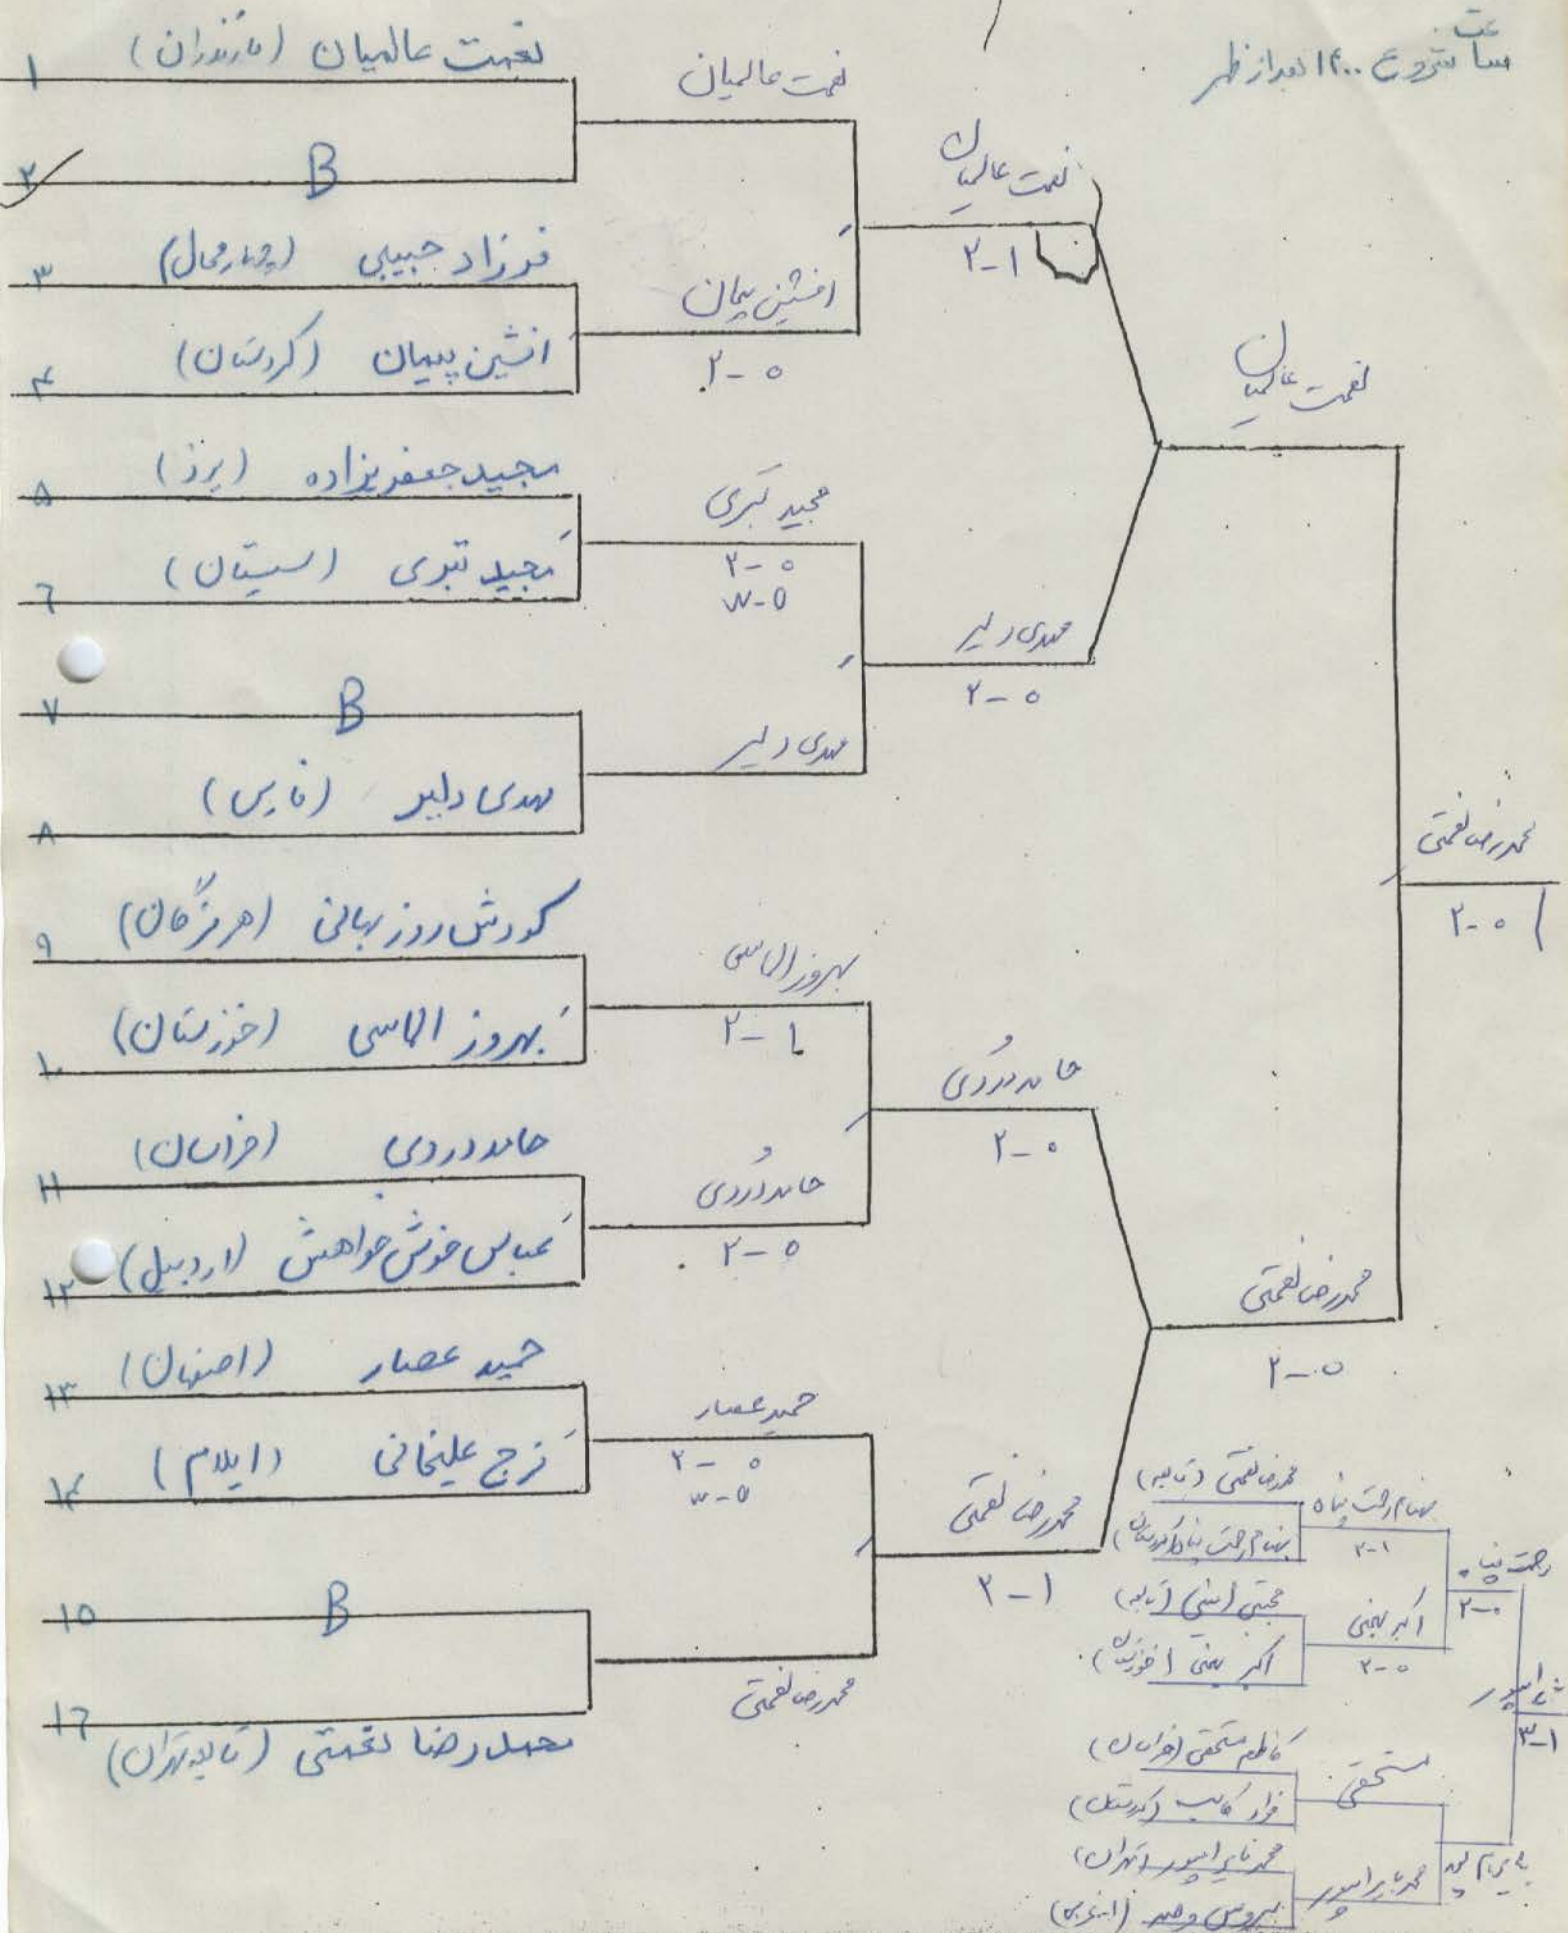 ساعت شروع ۱۴۰۰ بعداز ظهر
۱ نعمت عالمیان (مازندران)
۲ B
۳ فرزاد حبیبی (چهارمحال)
۴ افشین پیمان (کردستان)
۵ مجید جعفریزاده (یزد)
۶ مجید تبری (سیستان)
۷ B
۸ مهدی دلیر (فارس)
۹ کورش روزبهانی (هرمزگان)
۱۰ بهروز الماسی (خوزستان)
۱۱ حامد دردی (خراسان)
۱۲ عباس خوش خواهش (اردبیل)
۱۳ حمید عصار (اصفهان)
۱۴ فرج علیخانی (ایلام)
۱۵ B
۱۶ محمدرضا نعمتی (تابعه تهران)
نعمت عالمیان
افشین پیمان
۲-۰
مجید تبری
۲-۰
۳-۵
مهدی دلیر
بهروز الماسی
۲-۱
حامد دُردی
۲-۰
حمید عصار
۲-۰
۳-۵
محمدرضا نعمتی
نعمت عالمیان
۲-۱
مهدی دلیر
۲-۰
حامد دُردی
۲-۰
محمدرضا نعمتی
۲-۱
نعمت عالمیان
محمدرضا نعمتی
۲-۰
محمدرضا نعمتی
۲-۰
محمدرضا نعمتی (تابعه)
بهنام رحمت پناه (کردستان)
مجتبی امینی (تابعه)
اکبر یمنی (خوزستان)
کاظم مستحقی (خراسان)
(کردستان)
محمد نایر امپور (تهران)
سیروس وحید
بهنام رحمت پناه
۲-۱
اکبر یمنی
۲-۰
مستحقی
محمد نایر امپور
رحمت پناه
۲-۰
۳-۱